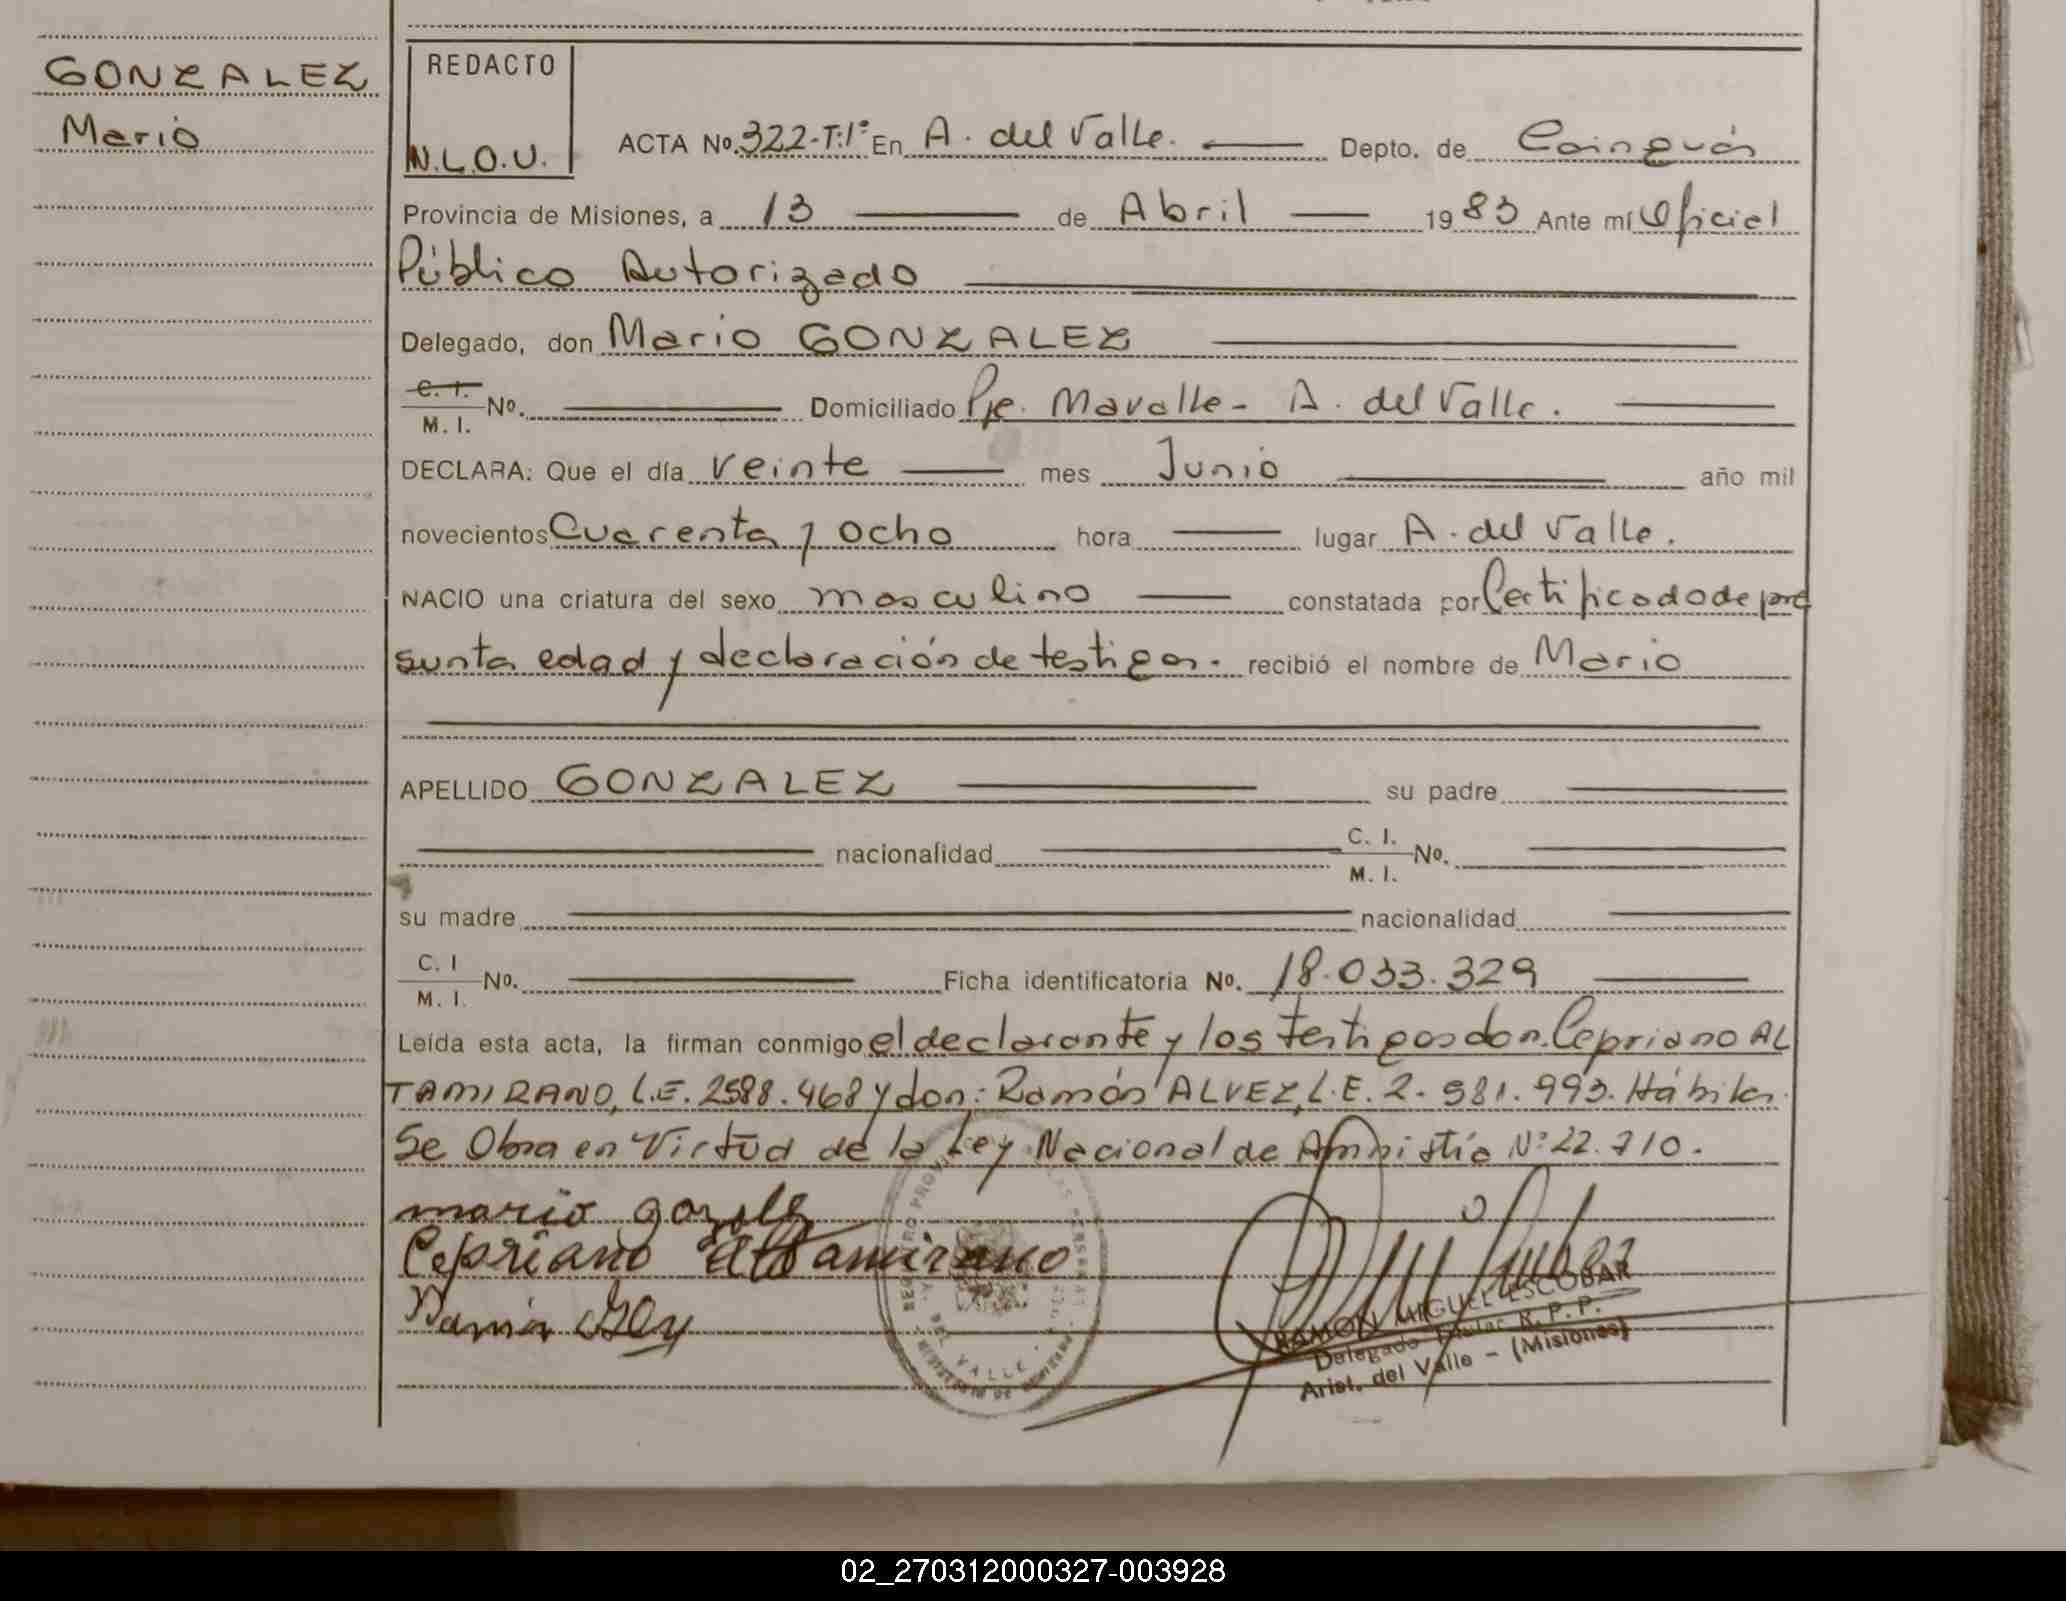 GONZALEZ
Mario
REDACTO
N.L.O.U.
ACTA No. 322-T:1º En A. del Valle. Depto. de Cainguás
Provincia de Misiones, a 13 de Abril 1983 Ante mí Oficial
Público Autorizado
Delegado, don Mario GONZALEZ
C. I.
M. I. No. Domiciliado Pje. Mavalle - A. del Valle.
DECLARA: Que el día veinte mes Junio año mil
novecientos Cuarenta y ocho hora lugar A. del Valle.
NACIO una criatura del sexo masculino constatada por Certificado de pre
sunta edad y declaración de testigos. recibió el nombre de Mario
APELLIDO GONZALEZ su padre
nacionalidad C. I.
M. I. No.
su madre nacionalidad
C. I
M. I. No. Ficha identificatoria No. 18.033.329
Leída esta acta, la firman conmigo el declarante y los testigos don. Cepriano AL
TAMIRANO, L.E. 2588.468 y don: Ramón ALVEZ, L.E. 2.581.993. Hábiles.
Se Obra en Virtud de la Ley Nacional de Amnistía Nº 22.710.
mario
Cepriano altamirano
Ramón
DEL VALLE
RAMON MIGUEL ESCOBAR
Delegado Titular R. P. P.
Arist. del Valle - (Misiones)
02_270312000327-003928